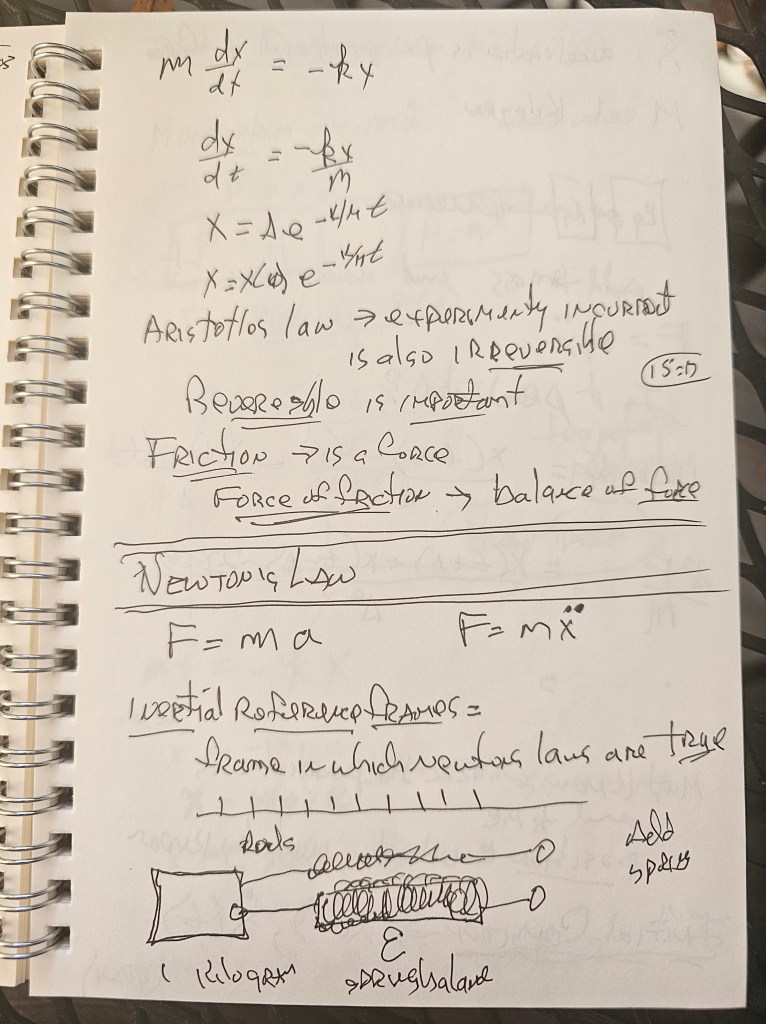 m dx/dt = -kx
dx/dt = -kx/m
x = Ae^-k/m t
x = x(0) e^-k/m t
Aristotles law → experimenty incurrect
is also irreversible
Reversible is important
15:17
Friction → is a force
Force of friction → balance of force
Newton's Law
F = ma F = mẍ
Inertial Reference frames =
frame in which newtons laws are true
Rods
Add
1 Kilogram